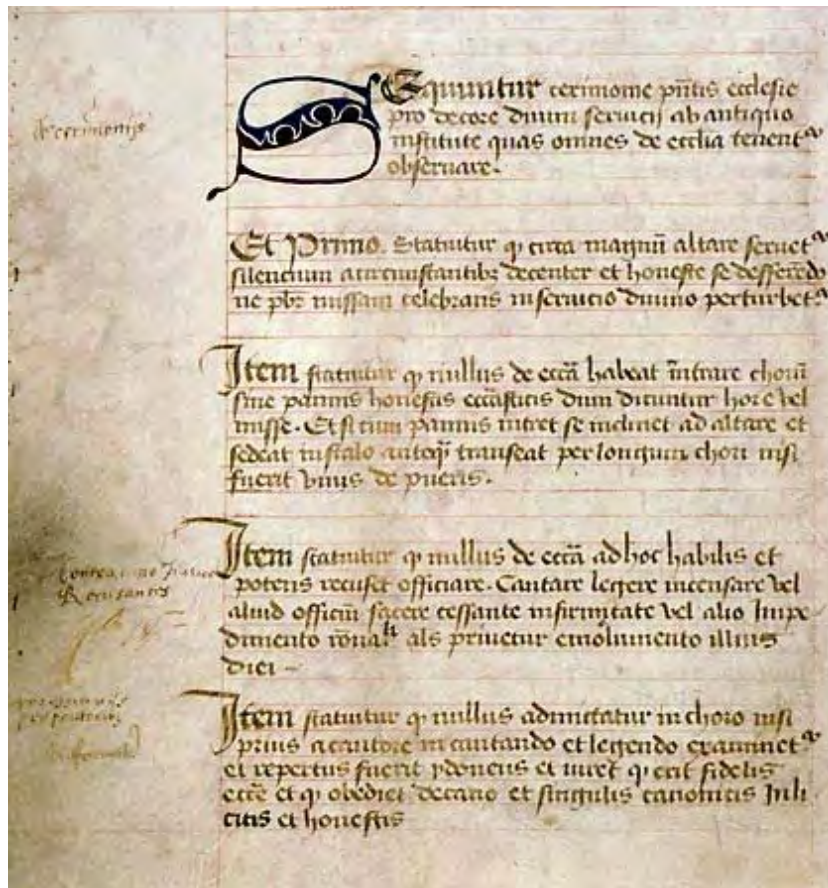 de cerimonijs
Sequuntur cerimonie pñtis ecclesie
pro decore diuini seruicij ab antiquo
institute quas omnes de ecclia tenent
obseruare.
Et Primo. Statuitur q circa magnũ altare seruet
silencium a circunstantibz decenter et honeste se defferẽdo
ne pbr missam celebrans in seruicio diuino perturbet
Item statuitur q nullus de eccã habeat ĩntrare chorũ
sine pannis honestis eccĩasticis dum dicuntur hore vel
misse. Et si cum pannis intret se inclinet ad altare et
sedeat in stalo anteq̃ transeat per longum chori nisi
fuerit vnus de pueris.
Item statuitur q nullus de eccã ad hoc habilis et
potens recuset officiare. Cantare legere incensare vel
aliud officiũ facere cessante infirmitate vel alio Impe
dimento rõnali als priuetur emolumento illius
diei
Recusantes
Item statuitur q nullus admictatur in choro nisi
prius a cantore in cantando et legendo examinet
et repertus fuerit ydoneus et iuret q erit fidelis
ecce et q obediet decano et singulis canonicis In li
citis et honestis